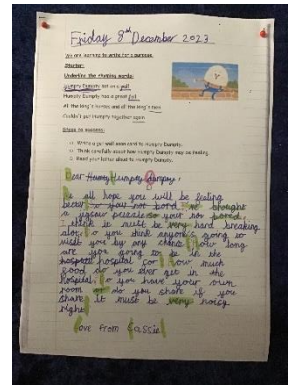 Friday 8th December 2023
We are learning to write for a purpose.
Starter:
Underline the rhyming words:
Humpty Dumpty sat on a wall
Humpty Dumpty had a great fall
All the king's horses and all the king's men
Couldn't put Humpty together again
Steps to success:
Write a get well soon card to Humpty Dumpty.
Think carefully about how Humpty Dumpty may be feeling.
Read your letter aloud to Humpty Dumpty.
Dear Humpty Dumpty,
We all hope you will be feeling
better your not bord. We brought
a jigsaw puzzle so your not bored.
I think it must be very hard breaking
Do you think anyone's going to
visit you by any chance? How long
are you going to be in the
hospital for? How much
good do you ever get in the
hospital, Do you have your own
room or do you share if you
share it must be very noisy
right
Love from Cassie